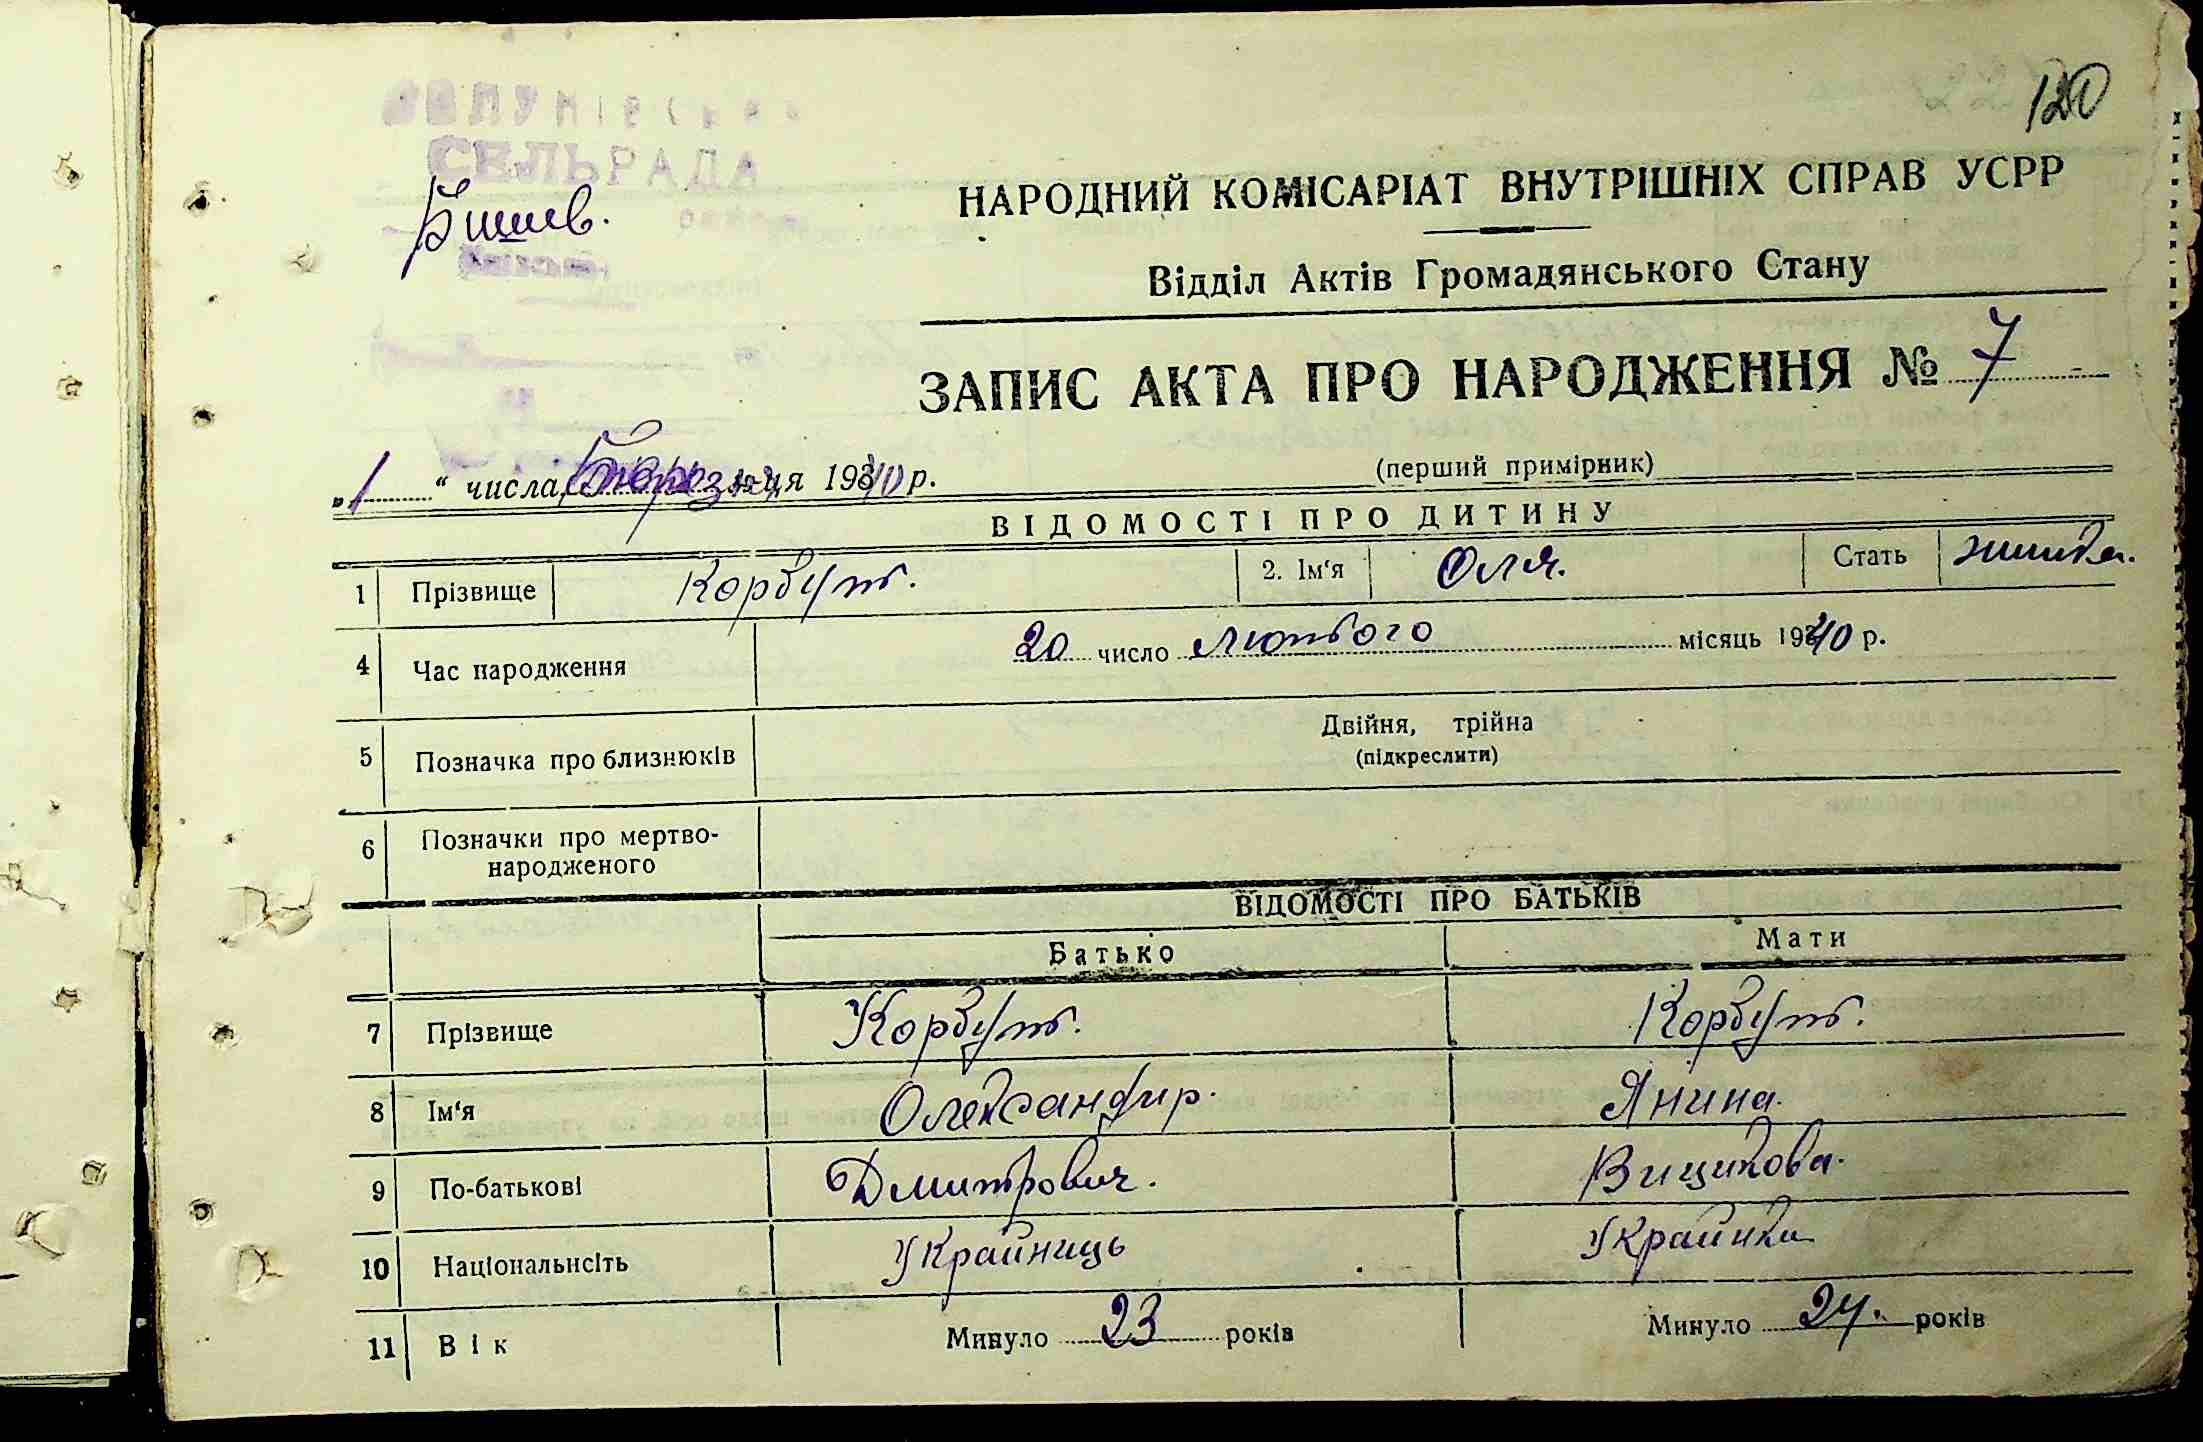 120
СЕЛЬРАДА
Бишів.
НАРОДНИЙ КОМІСАРІАТ ВНУТРІШНІХ СПРАВ УСРР
Відділ Актів Громадянського Стану
ЗАПИС АКТА ПРО НАРОДЖЕННЯ № 7
„1“ числа, місяця 1940 р.
(перший примірник)
ВІДОМОСТІ ПРО ДИТИНУ
1 Прізвище Корбут. 2. Ім'я Оля. Стать жінка.
4 Час народження 20 число лютого місяць 1940 р.
5 Позначка про близнюків Двійня, трійна
(підкреслити)
6 Позначки про мертво-
народженого
ВІДОМОСТІ ПРО БАТЬКІВ
Батько Мати
7 Прізвище Корбут. Корбут.
8 Ім'я Олександир. Янина.
9 По-батькові Дмитрович. Вициковa.
10 Національнсіть Украйниць Украйнка
11 Вік Минуло 23 років Минуло 24. років